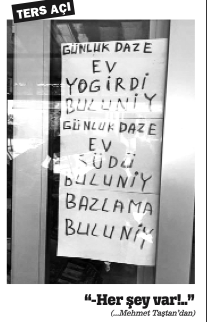 TERS AÇI
GÜNLÜK DAZE
EV
YOGİRDİ
BULUNİY
GÜNLÜK DAZE
EV
SÜDÜ
BULUNİY
BAZLAMA
BULUNİY
“-Her şey var!..”
(...Mehmet Taştan’dan)